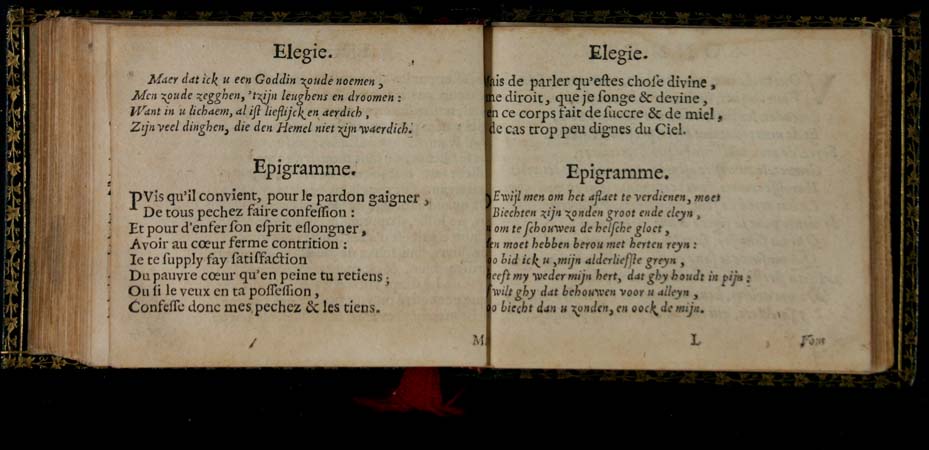 Elegie.
Maer dat ick u een Goddin zoude noemen,
Men zoude zegghen, 'tzijn leughens en droomen:
Want in u lichaem, al ist lieflijck en aerdich,
Zijn veel dinghen, die den Hemel niet zijn waerdich.
Epigramme.
PVis qu'il convient, pour le pardon gaigner,
De tous pechez faire confeſſion:
Et pour d'enfer ſon eſprit eſlongner,
Avoir au cœur ferme contrition:
Ie te ſupply fay ſatiſfaction
Du pauvre cœur qu'en peine tu retiens;
Ou ſi le veux en ta poſſeſſion,
Confeſſe donc mes pechez & les tiens.
Elegie.
de parler qu'eſtes choſe divine,
diroit, que je ſonge & devine,
ce corps fait de ſuccre & de miel,
de cas trop peu dignes du Ciel.
Epigramme.
Ewijl men om het aflaet te verdienen, moet
Biechten zijn zonden groot ende cleyn,
om te ſchouwen de helſche gloet,
moet hebben berou met herten reyn:
bid ick u, mijn alderliefſte greyn,
my weder mijn hert, dat ghy houdt in pijn:
wilt ghy dat behouwen voor u alleyn,
biecht dan u zonden, en oock de mijn.
L